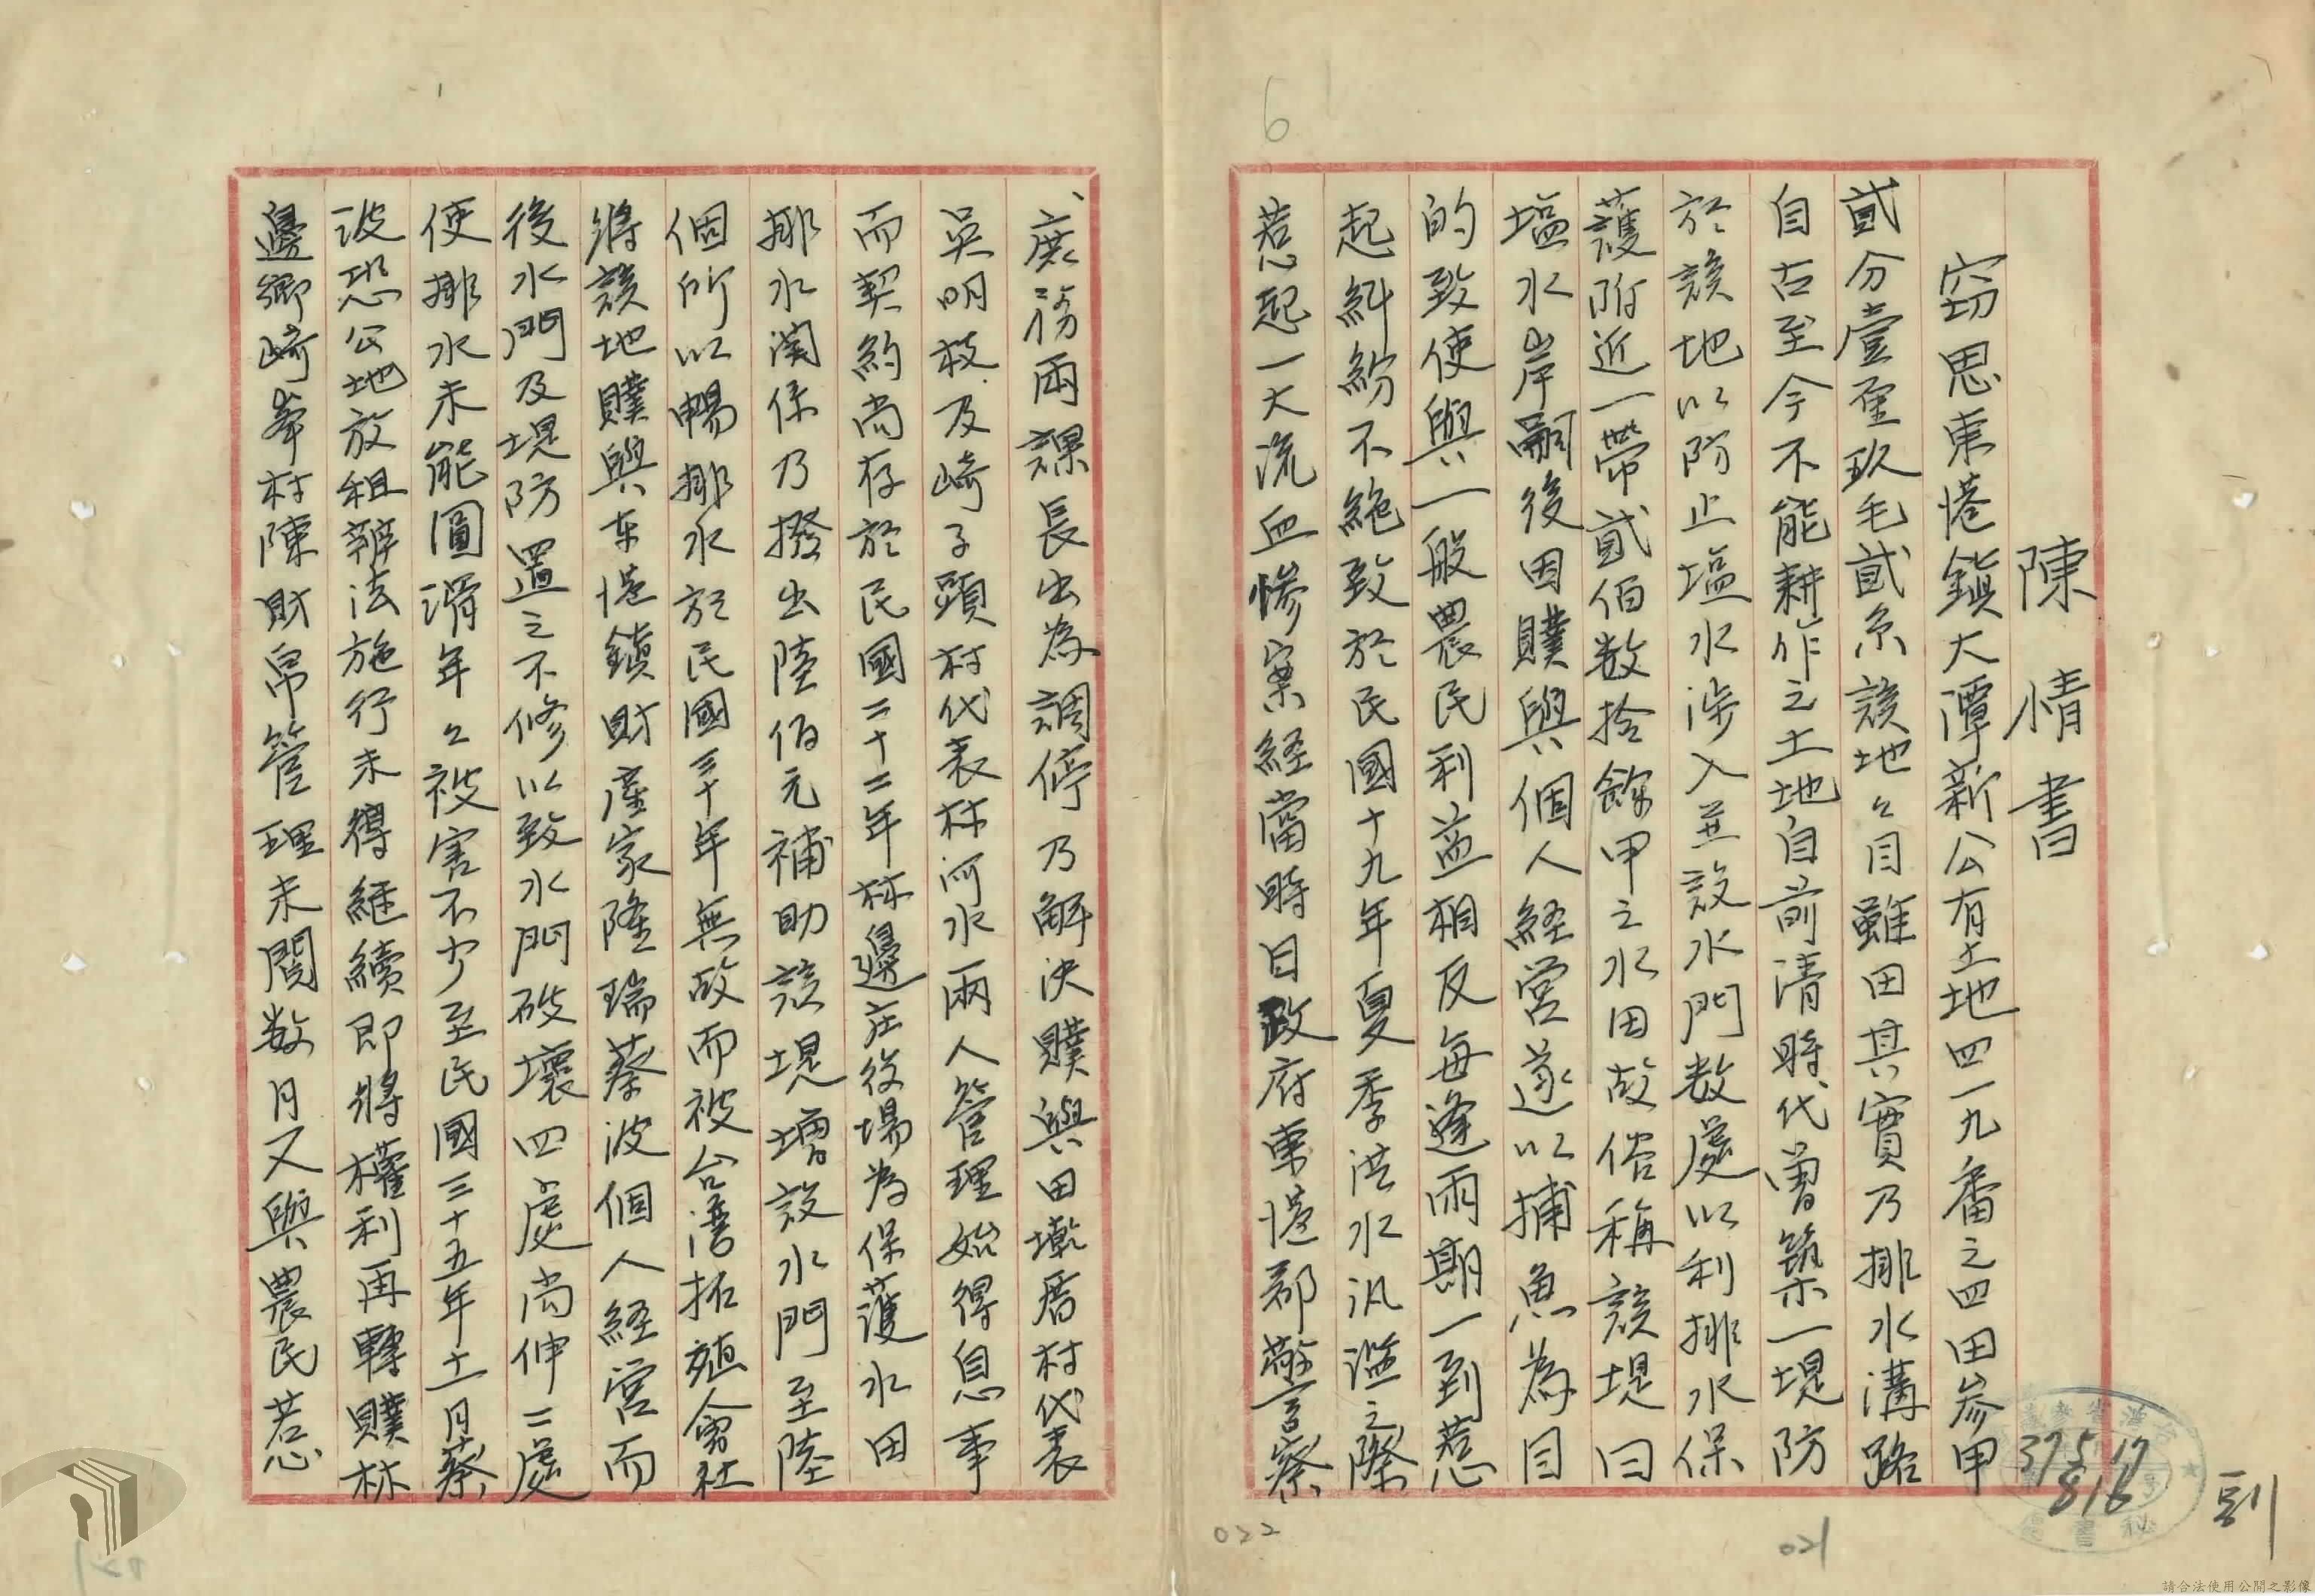 陳情書
窃思東港鎮大潭新公有土地四一九番之四田参甲
貳分壹厘玖毛貳糸該地々目雖田其實乃排水溝路
自古至今不能耕作之土地自前清時代曽築一堤防
於該地以防止塩水渉入並設水門数處以利排水保
護附近一帶貳佰数拾餘甲之水田故俗稱該堤曰
塩水岸嗣後因贌與個人経営遂以捕魚為目
的致使與一般農民利益相反每逢雨期一到惹
起糾紛不絶致於民國十九年夏季洪水汎滥之際
惹起一大流血惨案経當時日政府東港郡警察
庶務兩課長出為調停乃解決贌與田墘厝村代表
吳明枝及崎子頭村代表林河水兩人管理始得息事
而契約尚存於民國二十二年林邊庄役場為保護水田
排水関係乃撥出陸佰元補助該堤增設水門至陸
個所以暢排水於民國三十年無故而被台湾拓殖會社
將該地贌與东港鎮財產家隆瑞蔡波個人経営而
後水門及堤防置之不修以致水門破壞四處尚伸二處
使排水未能圓滑年々被害不少至民國三十五年十一月蔡
波恐公地放租辦法施行未得継續即將權利再轉贌林
邊鄉崎峯村陳財帛管理未閲数月又與農民惹
6
022
021
375 17
816
到
請合法使用公開之影像